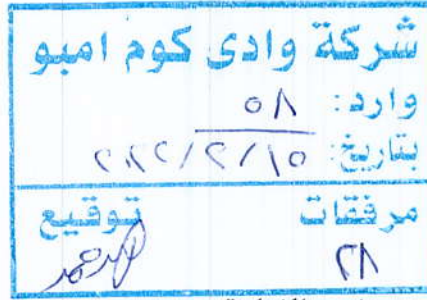 شركة وادى كوم امبو
وارد: ٥٨
بتاريخ: ٢٠٢٢/٢/١٥
مرفقات توقيع
٢٨